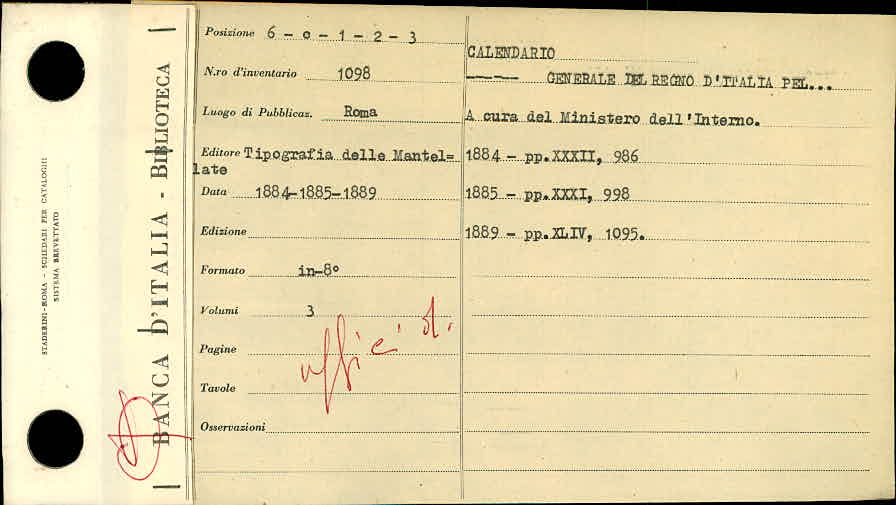 STADERINI-ROMA - SCHEDARI PER CATALOGHI
SISTEMA BREVETTATO
BANCA D'ITALIA - BIBLIOTECA
Posizione 6 - c - 1 - 2 - 3
N.ro d'inventario 1098
Luogo di Pubblicaz. Roma
Editore Tipografia delle Mantel=
late
Data 1884-1885-1889
Edizione
Formato in-8°
Volumi 3
Pagine
Tavole
Osservazioni
CALENDARIO
------ GENERALE DEL REGNO D'ITALIA PEL...
A cura del Ministero dell'Interno.
1884 - pp.XXXII, 986
1885 - pp.XXXI, 998
1889 - pp.XLIV, 1095.